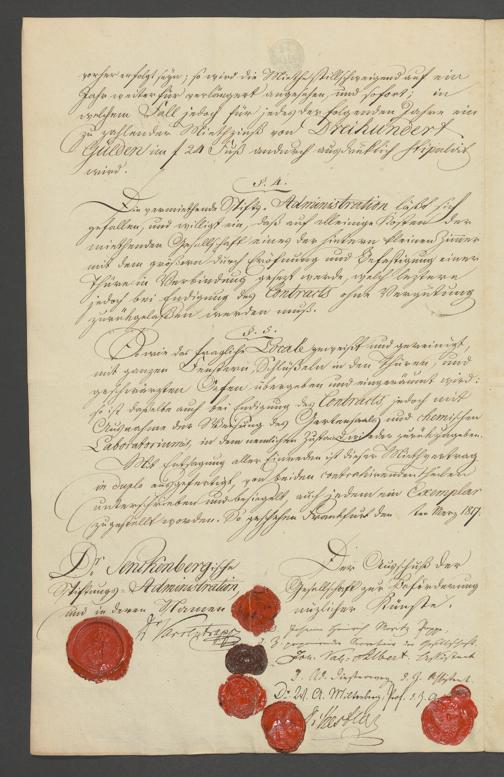 vorher erfolgt seyn; so wird die Miethe stillschweigend auf ein
Jahr weiter für verlängert angesehen, und sofort; in
welchem Fall jedoch für jedes der folgenden Jahre ein
zu zahlender Miethzinß von Dreihundert
Gulden im f 24 Fuß andurch ausdrüklich stipulirt
wird.
§. 4.
Die vermiethende Stifts-Administration läßt sich
gefallen, und williget ein, daß auf alleinige Kosten der
miethenden Gesellschaft eines der hintern kleinen Zimmer
mit dem größern durch Eröfnung und Befestigung einer
Thüre in Verbindung gesezt werde, welch leztere
jedoch bei Endigung des Contracts ohne Vergütung
zurükgelaßen werden muß.
§. 5.
So wie das fragliche Locale geweißt und gereinigt,
mit ganzen Fenstern, Schlüßeln in den Thüren, und
geschwärzten Oefen übergeben und eingeräumt wird:
so ist dasselbe auch bei Endigung des Contracts, jedoch mit
Ausnahme der Weisung des und chemischen
Laboratoriums, in dem nemlichen Zustand wieder zurük zugeben.
Mit Entsagung aller Einreden ist dieser Miethvertrag
in duplo ausgefertigt, von beiden contrahirenden Theilen
unterschrieben und besiegelt, auch jedem ein Exemplar
zugestellt worden. So geschehen Frankfurt den ten Merz 1817.
Dr. Senkenbergische
Stiftungs-Administration
und in deren Namen
Der Ausschuß der
Gesellschaft zur Beförderung
nüzlicher Künste.
Johann Heinrich Moritz Poppe
z. Z. Secretair der Gesellschaft.
Joh. Val. Albert.
J. Ad. Diesterweg d. G.
Dr. W. A. Miltenberg, Prof. d. G.
J. Kestler